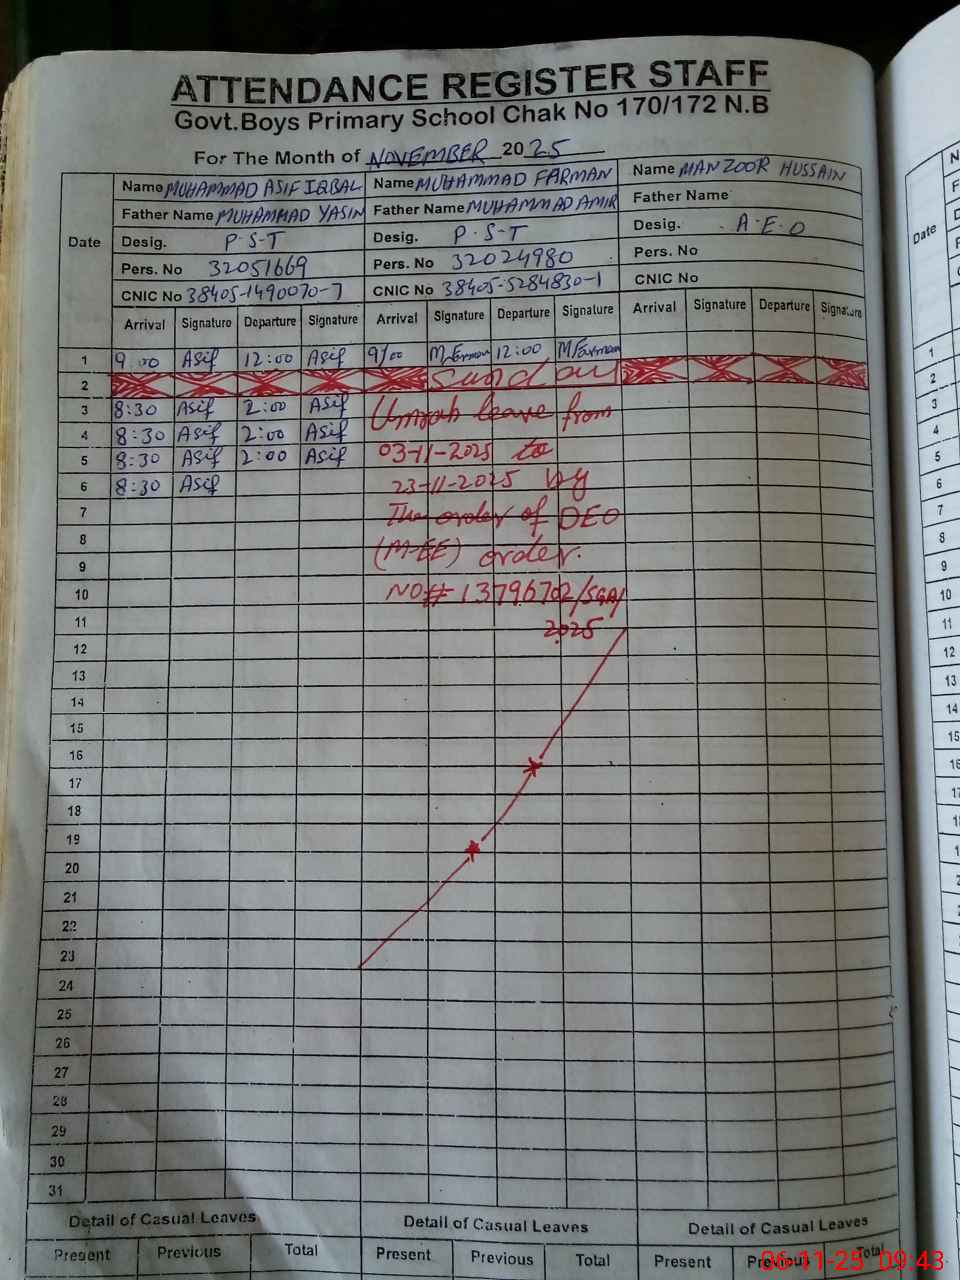 ATTENDANCE REGISTER STAFF
Govt.Boys Primary School Chak No 170/172 N.B
For The Month of NOVEMBER 2025
Date
Name MUHAMMAD ASIF IQBAL Name MUHAMMAD FARMAN Name MANZOOR HUSSAIN
Father Name MUHAMMAD YASIN Father Name MUHAMMAD AMIR Father Name
Desig. P.S.T Desig. P.S.T Desig. A.E.O
Pers. No 32051669 Pers. No 32024980 Pers. No
CNIC No 38405-1490070-7 CNIC No 38405-5284830-1 CNIC No
Arrival Signature Departure Signature Arrival Signature Departure Signature Arrival Signature Departure Signature
1 9:00 Asif 12:00 Asif 9:00 12:00 M Farman
2
3 8:30 Asif 2:00 Asif Umrah leave from
4 8:30 Asif 2:00 Asif
5 8:30 Asif 2:00 Asif 03-11-2025 to
6 8:30 Asif 23-11-2025 by
7 The order of DEO
8
9 (M-EE) order.
10 NO# 13796702/SGA/
11 2025
12
13
14
15
16
17
18
19
20
21
22
23
24
25
26
27
28
29
30
31
Detail of Casual Leaves Detail of Casual Leaves Detail of Casual Leaves
Present Previous Total Present Previous Total Present Previous Total
06-11-25 09:43
Date
1
2
3
4
5
6
7
8
9
10
11
12
13
14
15
16